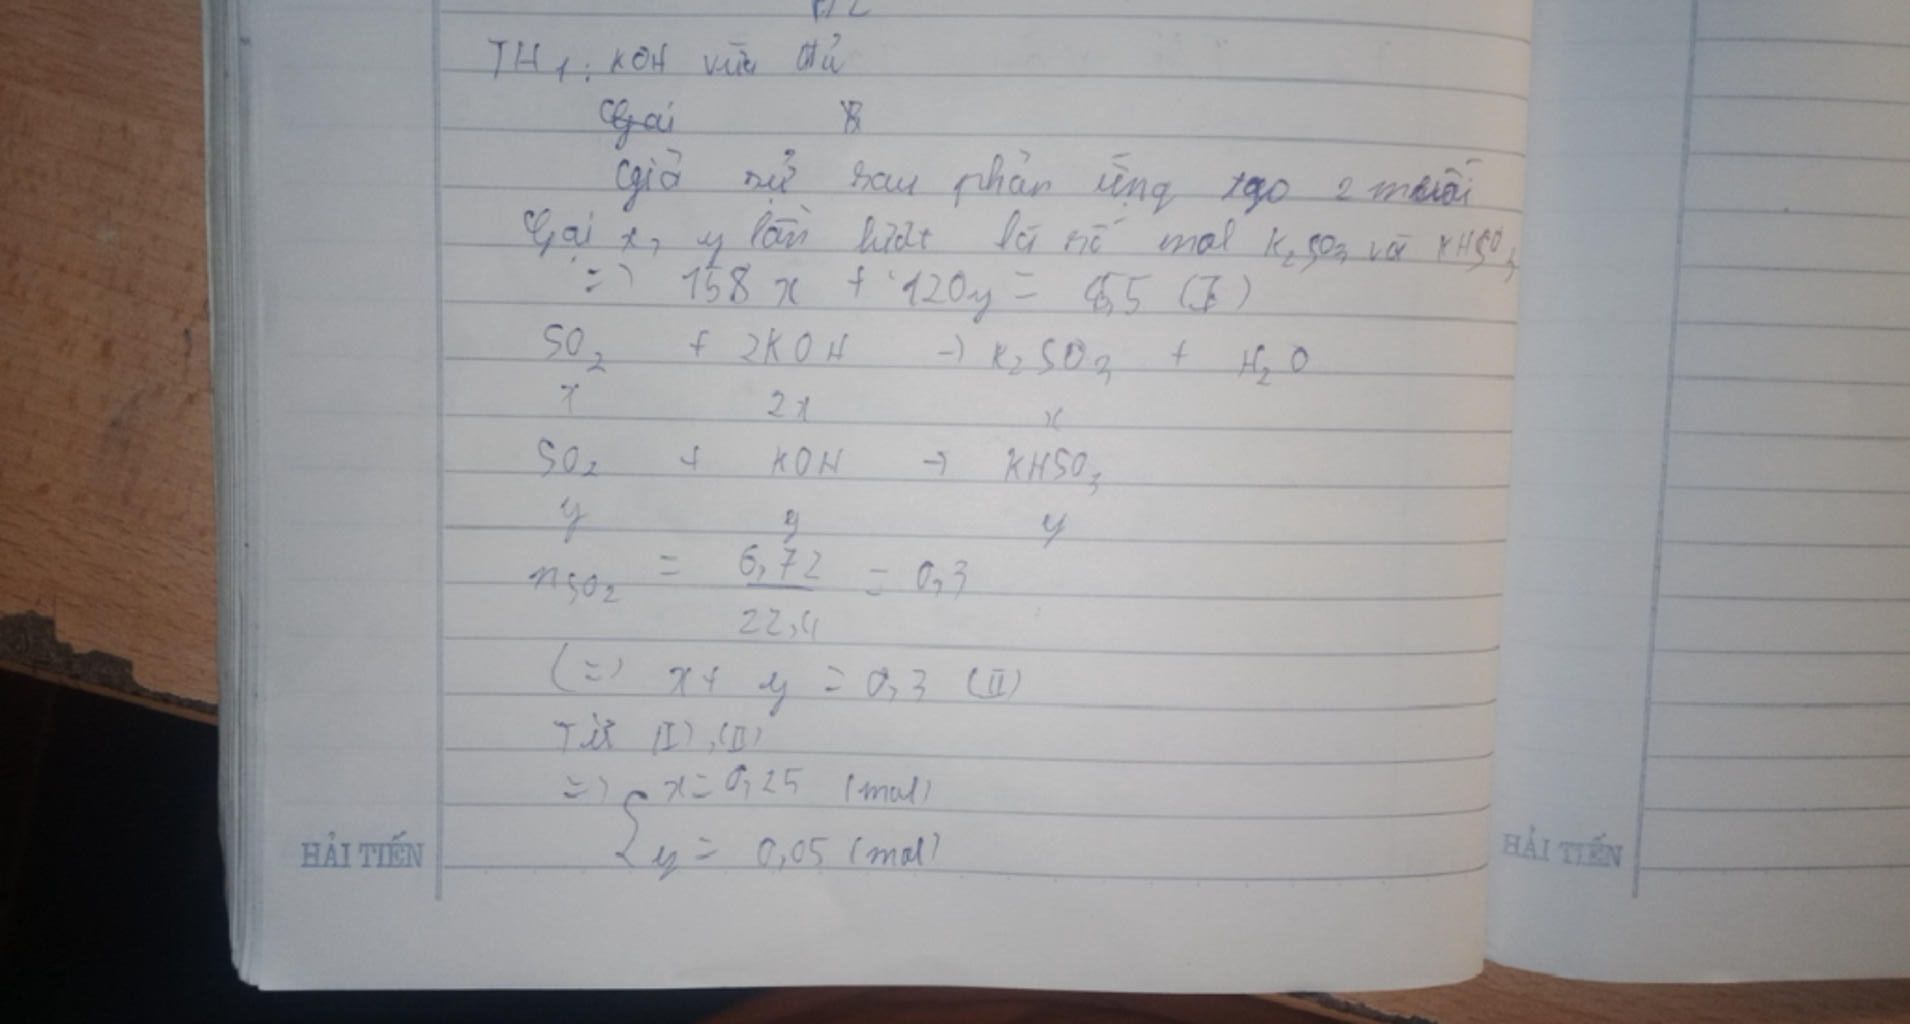 TH1: KOH vừa đủ
Gọi
Giả sử sau phản ứng tạo 2 muối
Gọi x, y lần lượt là số mol K2SO3 và KHSO3
=> 158x + 120y = 45,5 (I)
SO2 + 2KOH -> K2SO3 + H2O
x 2x x
SO2 + KOH -> KHSO3
y y y
nSO2 = 6,72 / 22,4 = 0,3
(=) x + y = 0,3 (II)
Từ (I), (II)
=> { x = 0,25 (mol)
y = 0,05 (mol)
HẢI TIẾN
HẢI TIẾN